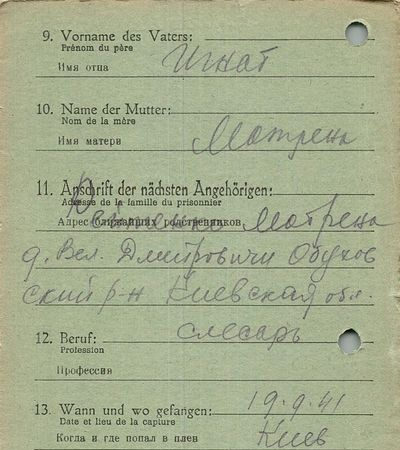 9. Vorname des Vaters:
Prénom du père
Имя отца
Игнат
10. Name der Mutter:
Nom de la mère
Имя матери
Мотрена
11. Anschrift der nächsten Angehörigen:
Adresse de la famille du prisonnier
Адрес ближайших родственников Мотрена
д. Вел. Дмитровичи Обухов
ский р-н Киевская обл.
12. Beruf:
слесарь
Profession
Профессия
13. Wann und wo gefangen: 19.9.41
Date et lieu de la capture
Когда и где попал в плен Киев